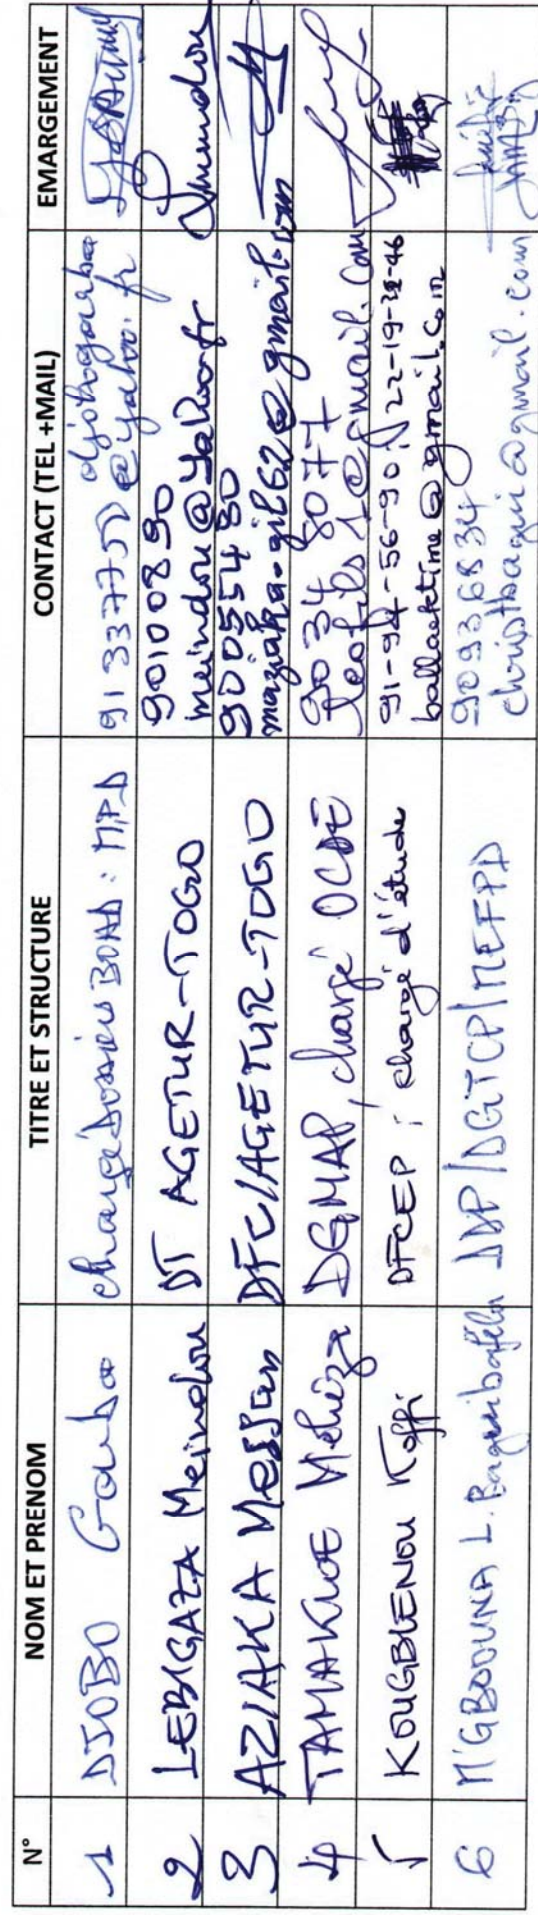 N° NOM ET PRENOM TITRE ET STRUCTURE CONTACT (TEL +MAIL) EMARGEMENT
1 DJOBO Garba chargé dossiers BOAD : MPD 91337750 djobogarba
@yahoo.fr
2 LEBIGAZA Meindou DT AGETUR-TOGO 90100890
meindou@yahoo.fr
3 AZIAKA Messan DFC/AGETUR-TOGO 90055480
maziaka-gil62@gmail.com
4 TAMAKLOE DGMAP, chargé 90348077
leofils1@gmail.com
5 KOUGBLENOU Koffi DFCEP ; chargé d'étude 91-94-56-90 / 22-19-
@gmail.com
6 M'GBOOUNA L. DDP/DGTCP/MEFPD 90936834
@gmail.com